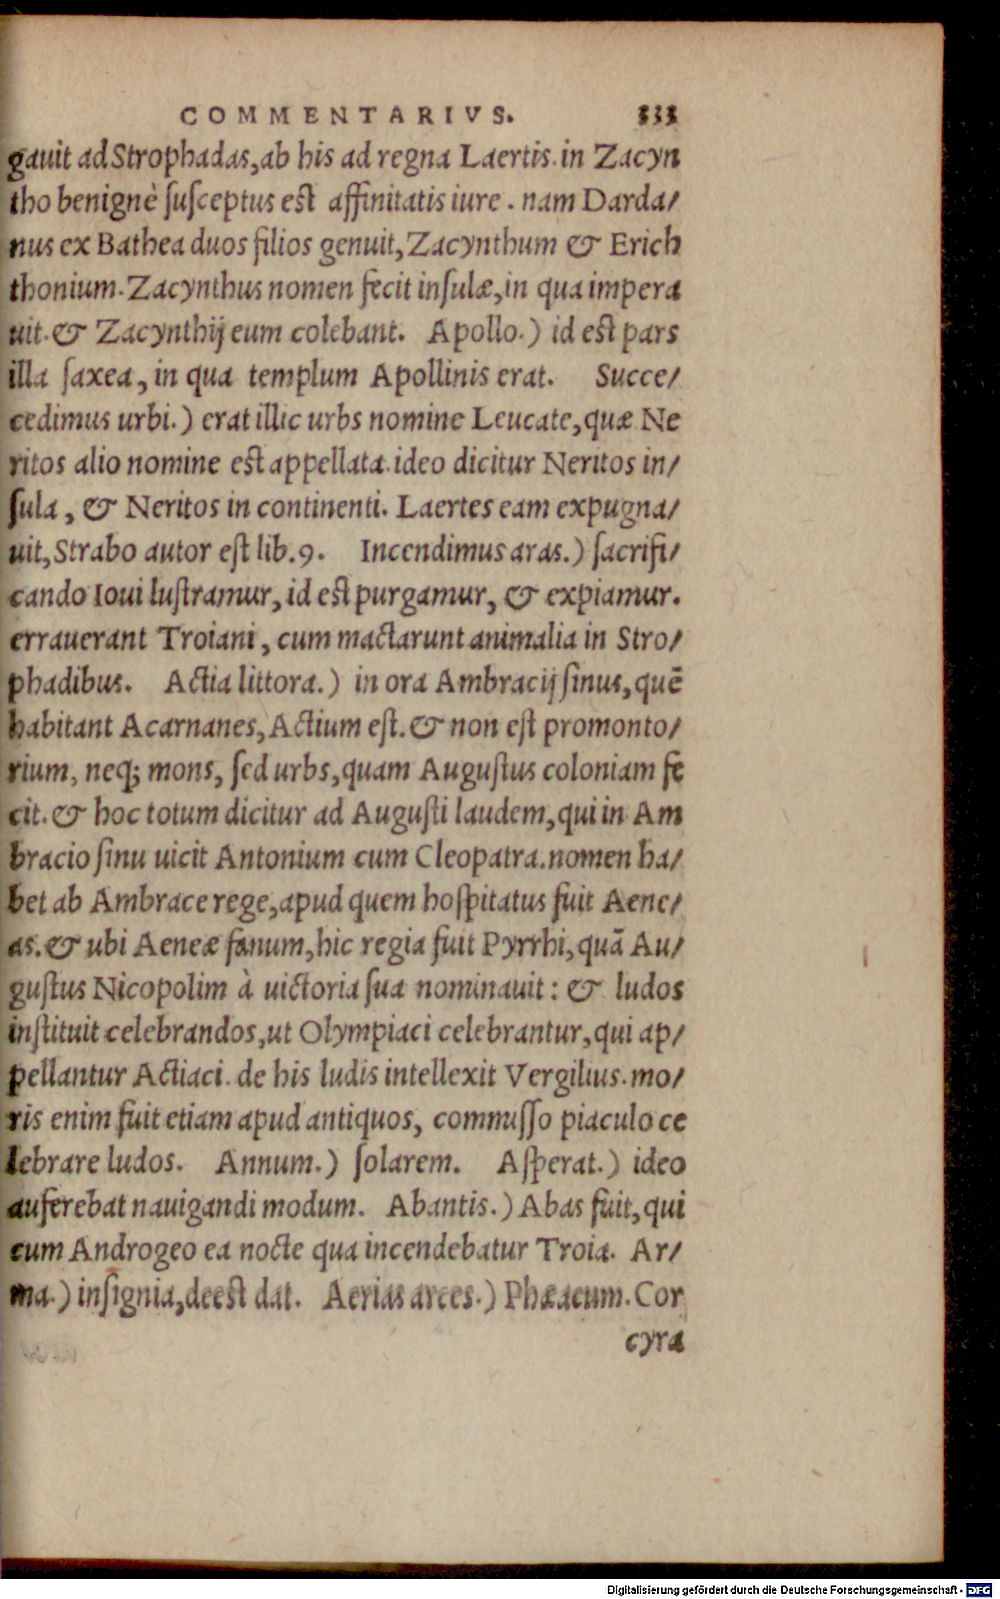 COMMENTARIVS. 333
gauit ad Strophadas, ab his ad regna Laertis. in Zacyn
tho benignè ſuſceptus eſt affinitatis iure. nam Darda/
nus ex Bathea duos filios genuit, Zacynthum & Erich
thonium. Zacynthus nomen fecit inſulæ, in qua impera
uit. & Zacynthij eum colebant. Apollo.) id eſt pars
illa ſaxea, in qua templum Apollinis erat. Succe/
cedimus urbi.) erat illic urbs nomine Leucate, quæ Ne
ritos alio nomine eſt appellata. ideo dicitur Neritos in/
ſula, & Neritos in continenti. Laertes eam expugna/
uit, Strabo autor eſt lib. 9. Incendimus aras.) ſacrifi/
cando Ioui luſtramur, id eſt purgamur, & expiamur.
errauerant Troiani, cum mactarunt animalia in Stro/
phadibus. Actia littora.) in ora Ambracij ſinus, quẽ
habitant Acarnanes, Actium eſt. & non eſt promonto/
rium, neq; mons, ſed urbs, quam Auguſtus coloniam fe
cit. & hoc totum dicitur ad Auguſti laudem, qui in Am
bracio ſinu uicit Antonium cum Cleopatra. nomen ha/
bet ab Ambrace rege, apud quem hoſpitatus fuit Aene/
as. & ubi Aeneæ fanum, hic regia fuit Pyrrhi, quã Au/
guſtus Nicopolim à uictoria ſua nominauit: & ludos
inſtituit celebrandos, ut Olympiaci celebrantur, qui ap/
pellantur Actiaci. de his ludis intellexit Vergilius. mo/
ris enim fuit etiam apud antiquos, commiſſo piaculo ce
lebrare ludos. Annum.) ſolarem. Aſperat.) ideo
auferebat nauigandi modum. Abantis.) Abas fuit, qui
cum Androgeo ea nocte qua incendebatur Troia. Ar/
ma.) inſignia, deeſt dat. Aerias arces.) Phæacum. Cor
cyra
Digitalisierung gefördert durch die Deutsche Forschungsgemeinschaft - DFG